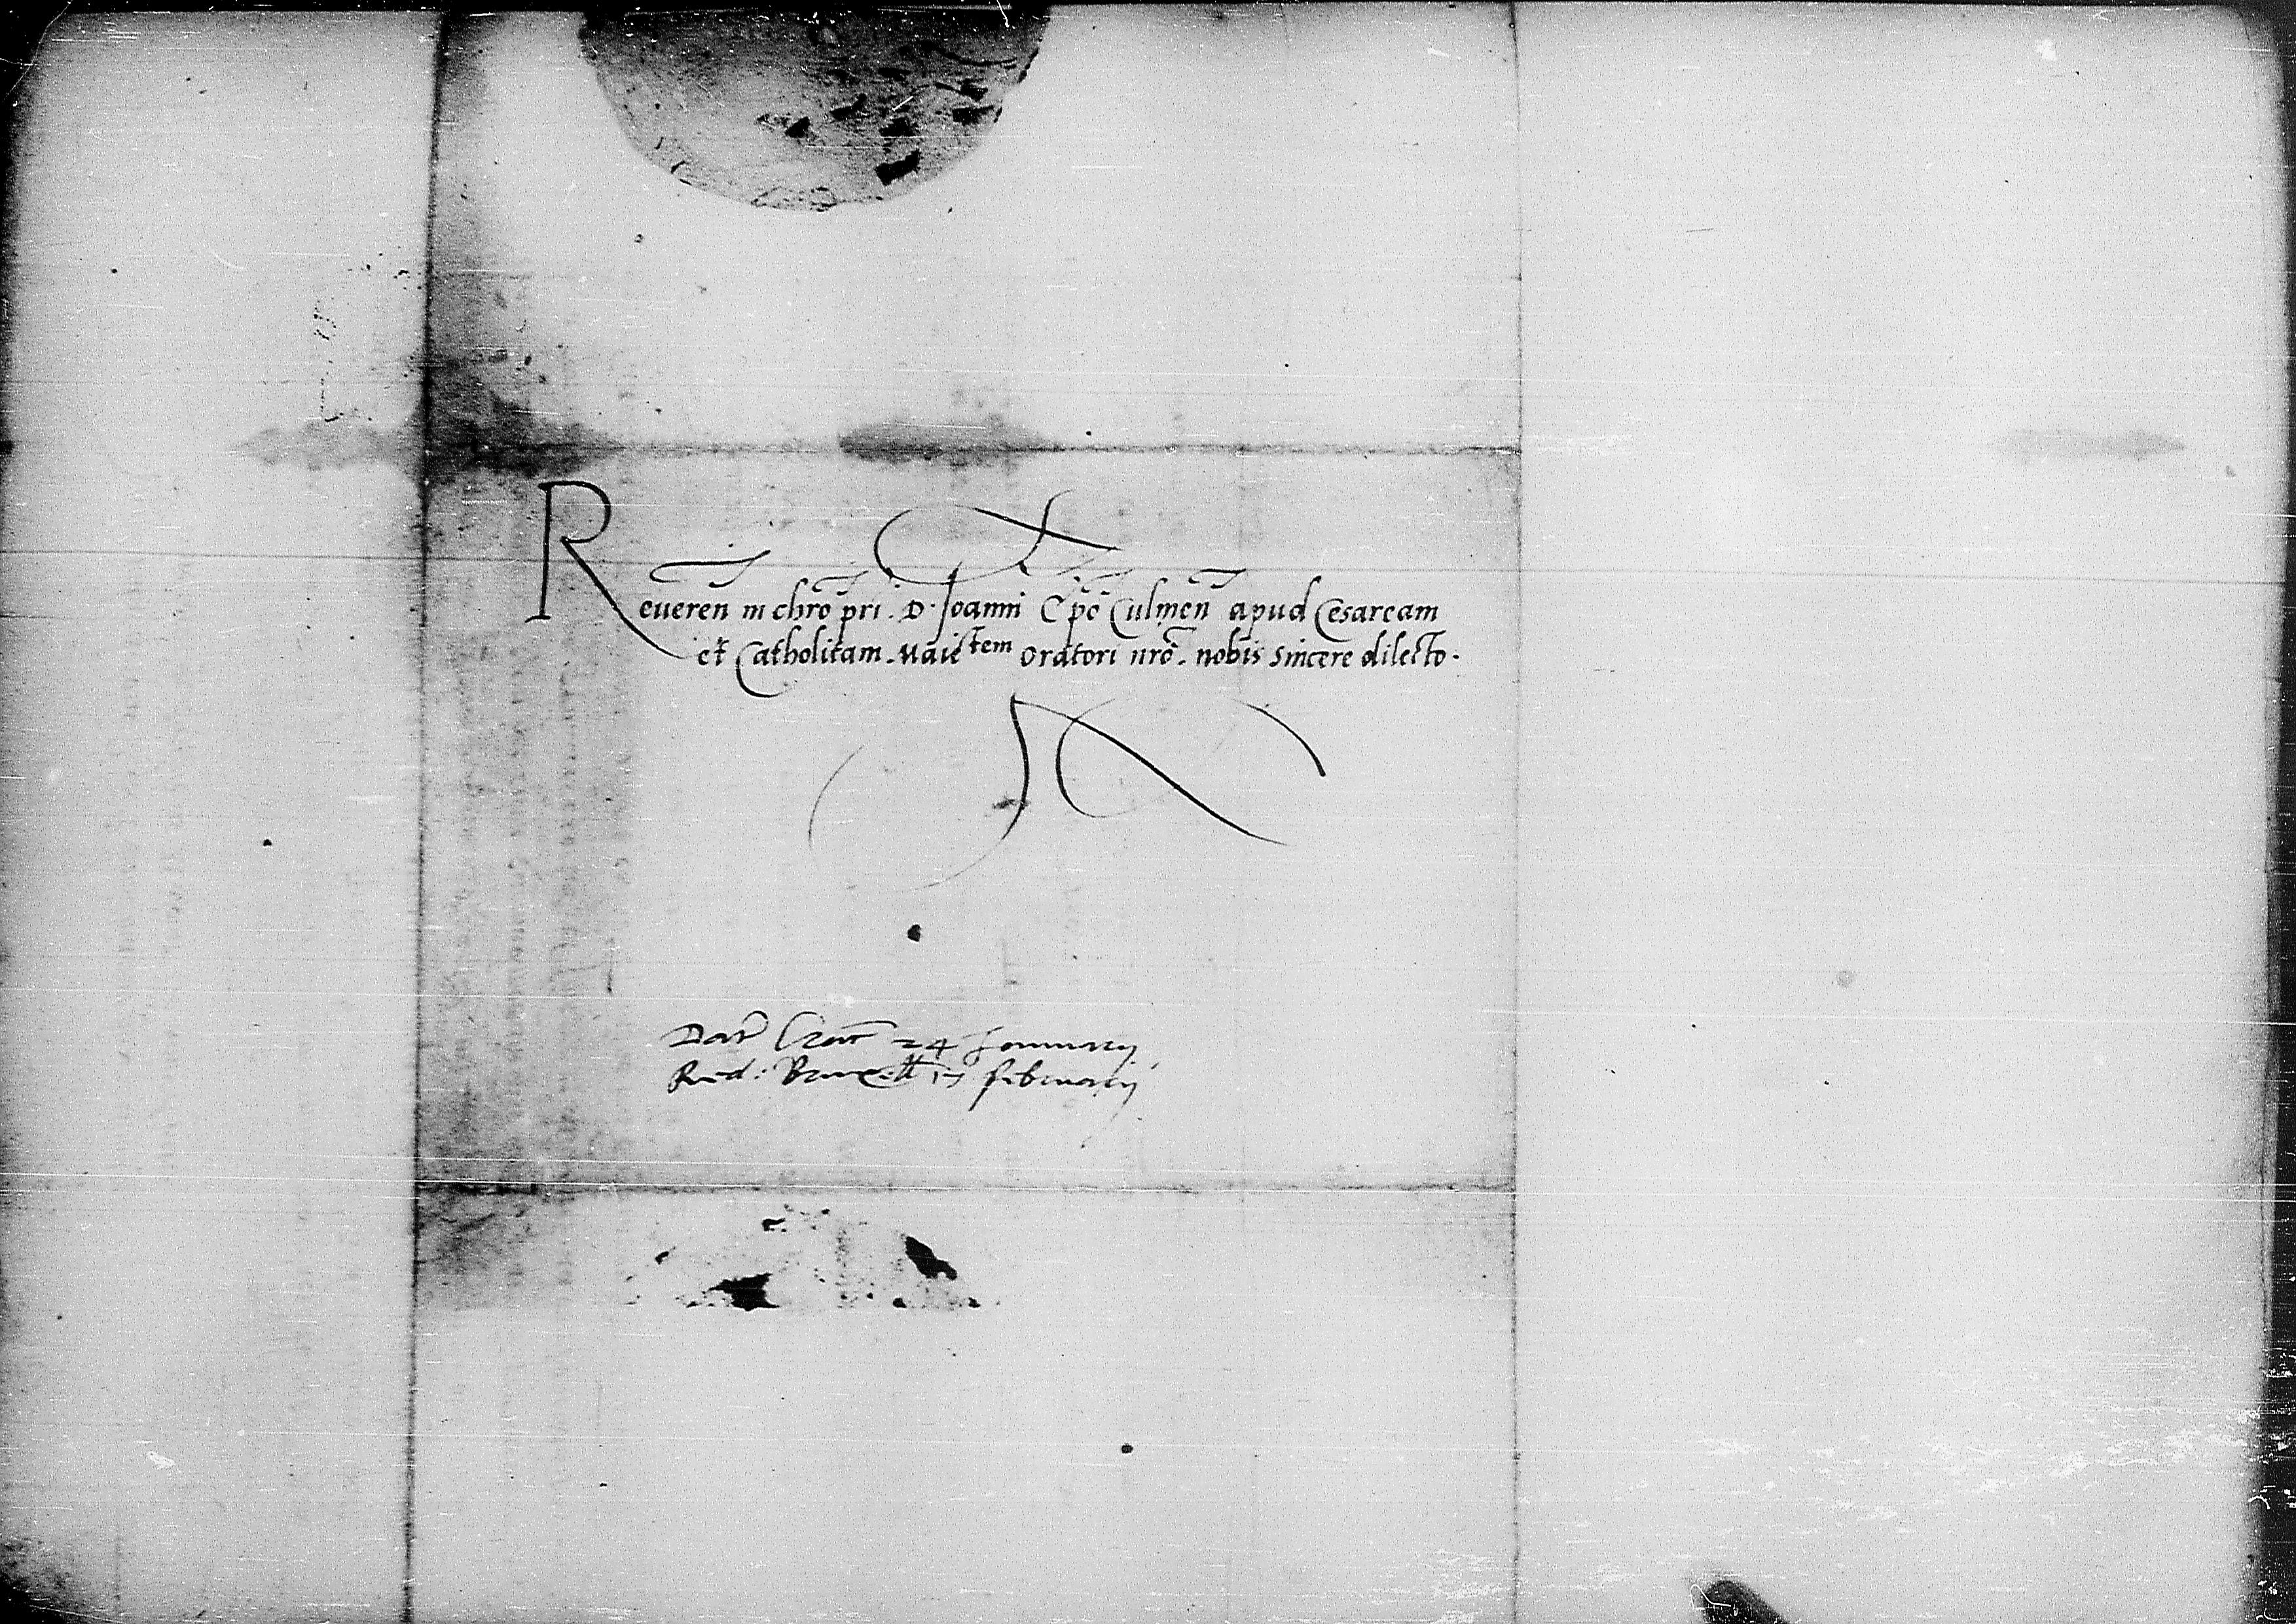 Reueren̄ in chr̄o pr̄i. D. Joanni Ep̄o Culmen̄ apud Cesaream
et Catholicam. Maiestem Oratori nr̄o. nobis sincere dilecto.
Dat̄ Crac̄ 24 Januarij
Red: Bruxell 17 februarij